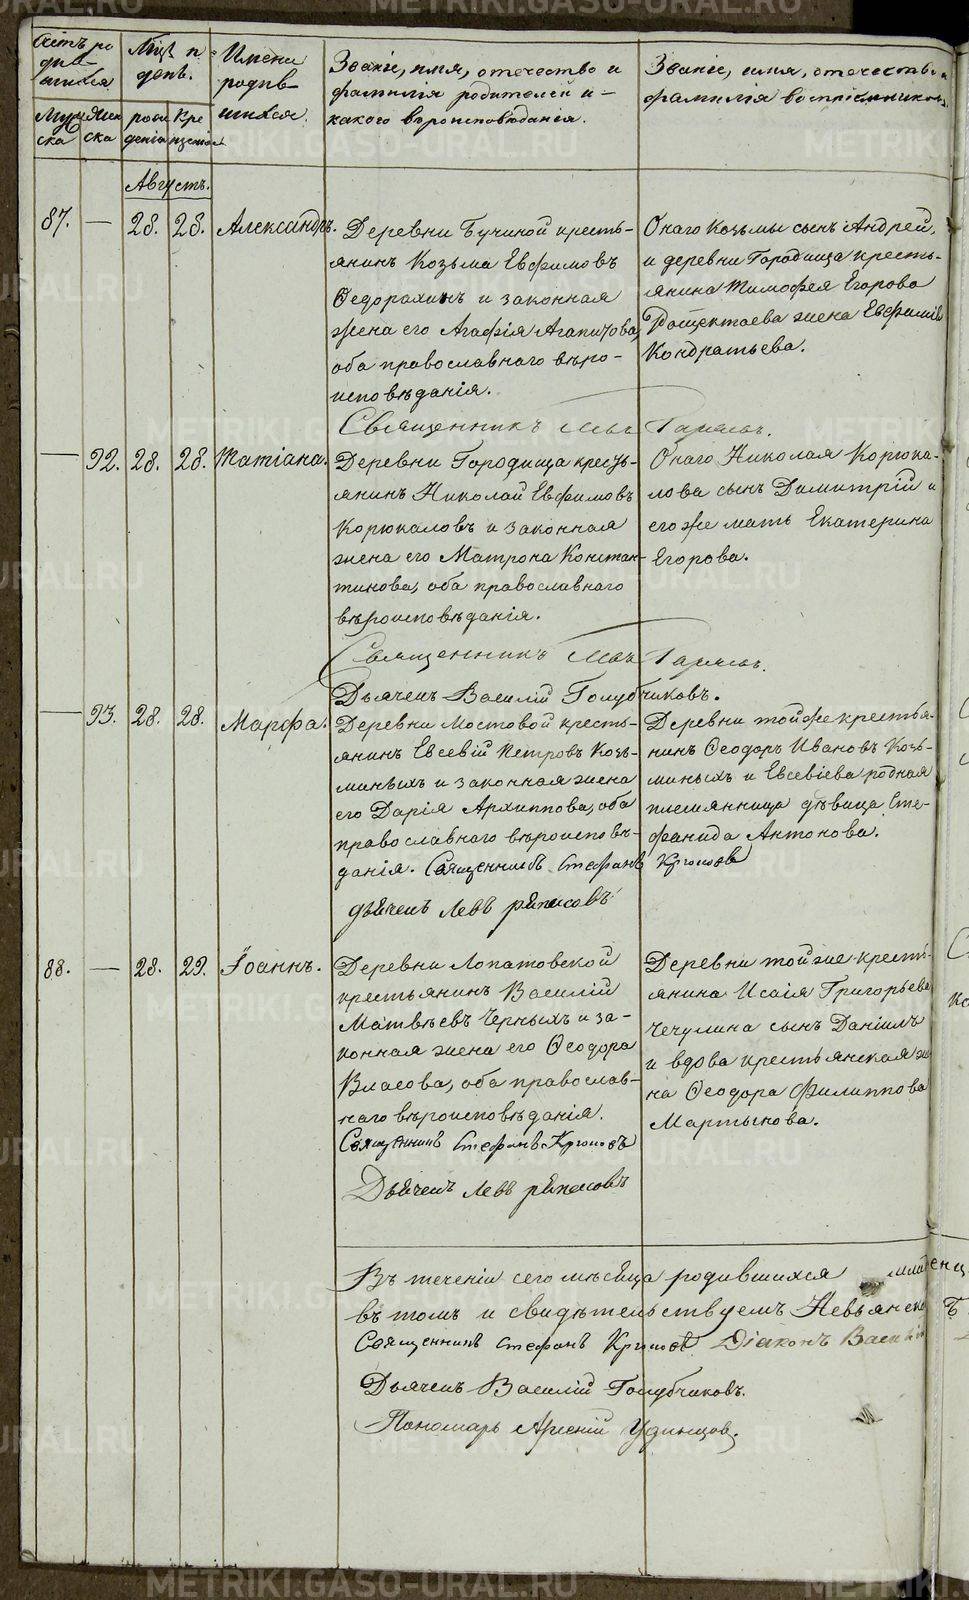 Счетъ ро
див
шихся
Муж
ска
Жен
ска
Мѣс. и
день.
рож
денія
кре
щенія
Имена
родив-
шихся.
Званіе, имя, отечество и
фамилія родителей и-
какого вѣроисповѣданія.
Званіе, имя, отечество и
фамилія воспріемниковъ.
Августъ.
87. — 28. 28. Александръ.
Деревни Бучиной кресть-
янинъ Козьма Евфимовъ
Ѳедорахинъ и законная
жена его Агафія Агапитова,
оба православнаго вѣро-
исповѣданія.
Священникъ Левъ Гаряевъ.
Онаго Козьмы сынъ Андрей,
и деревни Городища кресть-
янина Тимофея Егорова
жена Евфимія
Кондратьева.
— 92. 28. 28. Татіана.
Деревни Городища кресть-
янинъ Николай Евфимовъ
Корюкаловъ и законная
жена его Матрона Констан-
тинова, оба православнаго
вѣроисповѣданія.
Священникъ Левъ Гаряевъ.
Дьячекъ Василій Голубчиковъ.
Онаго Николая Корюка-
лова сынъ Димитрій и
его же мать Екатерина
Егорова.
— 93. 28. 28. Марфа.
Деревни Мостовой кресть-
янинъ Евсевій Петровъ Козь-
миныхъ и законная жена
его Дарія Архиппова, оба
православнаго вѣроисповѣ-
данія. Священникъ Стефанъ
дьячекъ Левъ
Деревни той же крестья-
нинъ Ѳеодоръ Ивановъ Козь-
миныхъ и Евсевіева родная
племянница дѣвица Сте-
фанида Антонова.
88. — 28. 29. Іоаннъ.
Деревни Лопатовской
крестьянинъ Василій
Матвѣевъ Черныхъ и за-
конная жена его Ѳеодора
Власова, оба православ-
наго вѣроисповѣданія.
Священникъ Стефанъ
Дьячекъ Левъ
Деревни той же кресть-
янина Исаія Григорьева
Чечулина сынъ Даніилъ
и вдова крестьянская же
на Ѳеодора Филиппова
Мартынова.
Въ теченіи сего мѣсяца родившихся младенц
въ томъ и свидѣтельствуемъ Невьянск
Священникъ Стефанъ Діаконъ Василій
Дьячекъ Василій Голубчиковъ.
Пономарь Арсеній Удинцов.
METRIKI.GASO-URAL.RU